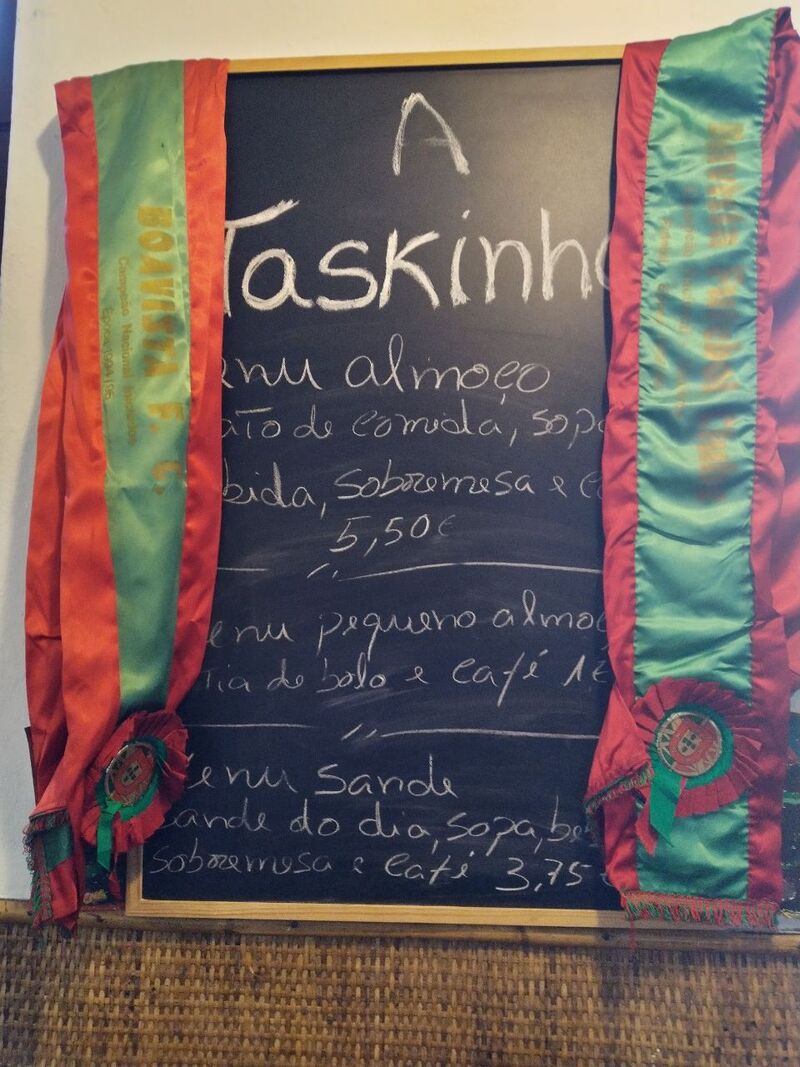 A
Taskinho
enu almoço
ato de comida, sopa
bida, sobremesa e c
5,50€
enu pequeno almoç
tia de bolo e café 1€
Menu sande
Sande do dia, sopa, be
sobremesa e café 3,75€
BOAVISTA F. C.
Campeão Nacional
Época 1994/95